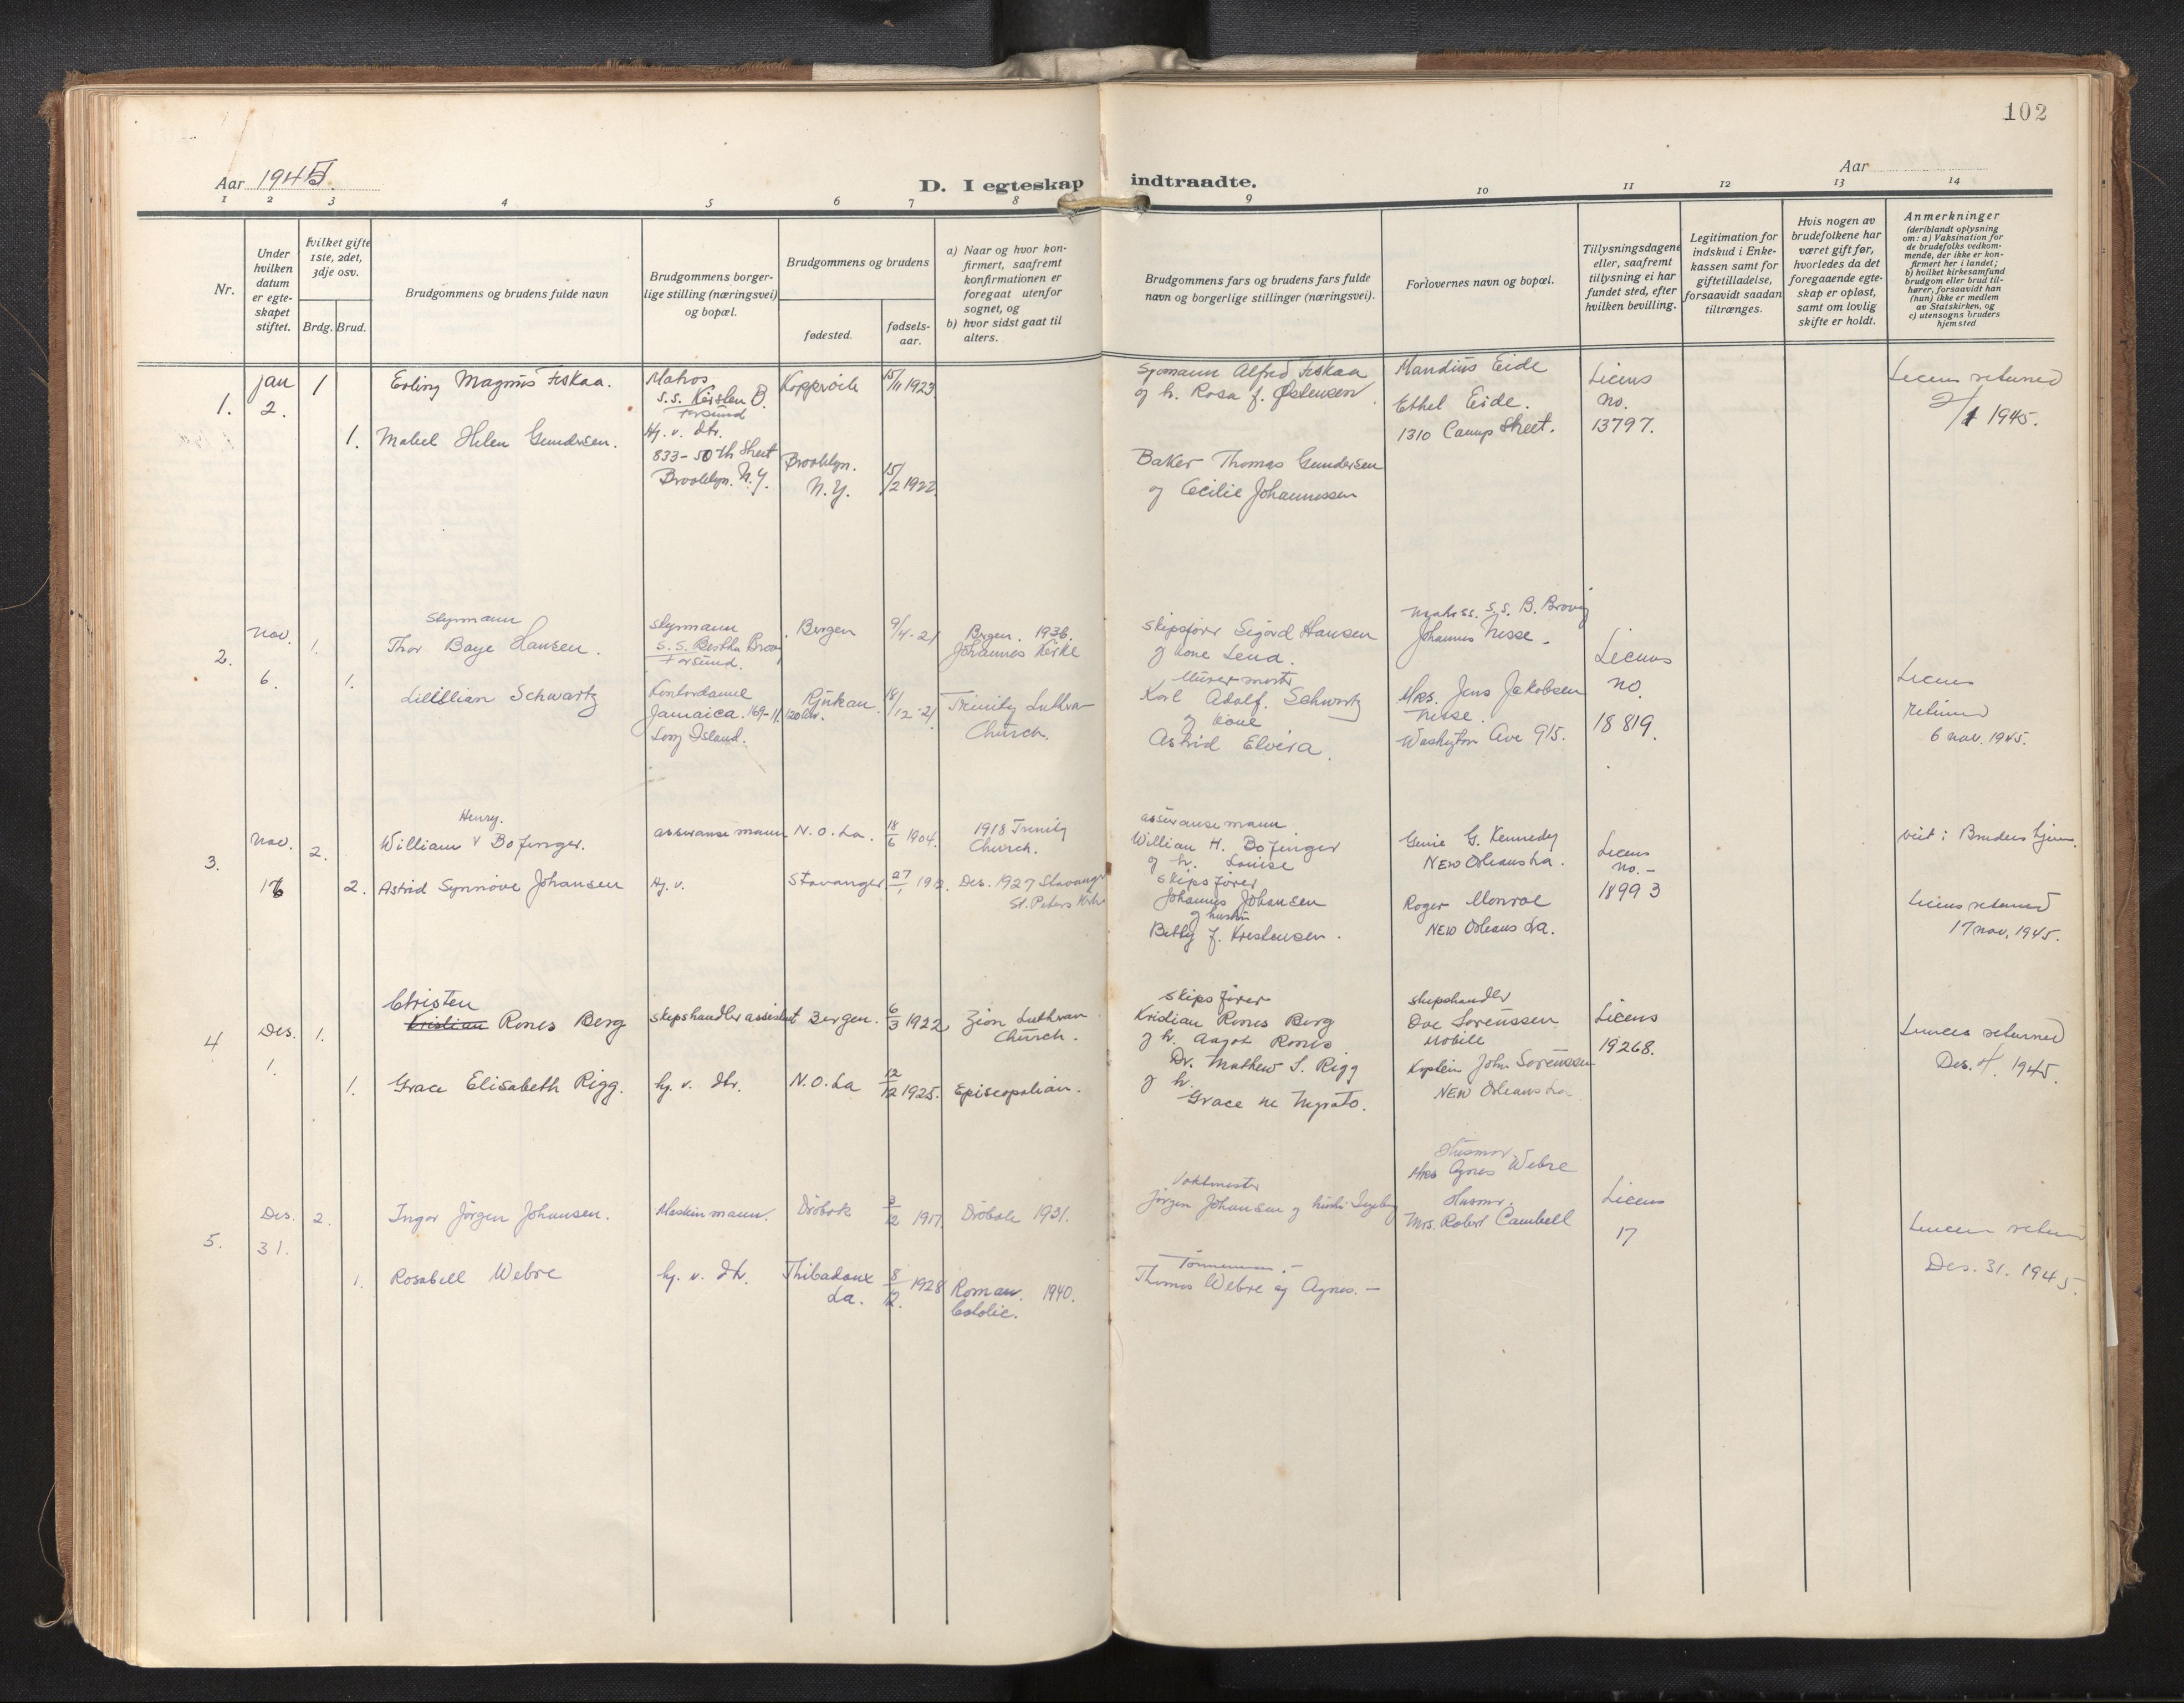 102
Aar 1945.
D. I egteskap indtraadte.
Aar
1 2 3 4 5 6 7 8 9 10 11 12 13 14
Nr.
Under hvilken datum er egteskapet stiftet.
Hvilket gifte 1ste, 2det, 3dje osv.
Brdg. Brud.
Brudgommens og brudens fulde navn
Brudgommens borgerlige stilling (næringsvei) og bopæl.
Brudgommens og brudens
fødested.
fødselsaar.
a) Naar og hvor konfirmert, saafremt konfirmationen er foregaat utenfor sognet, og
b) hvor sidst gaat til alters.
Brudgommens fars og brudens fars fulde navn og borgerlige stillinger (næringsvei).
Forlovernes navn og bopæl.
Tillysningsdagene eller, saafremt tillysning ei har fundet sted, efter hvilken bevilling.
Legitimation for indskud i Enkekassen samt for giftetilladelse, forsaavidt saadan tiltrænges.
Hvis nogen av brudefolkene har været gift før, hvorledes da det foregaaende egteskap er opløst, samt om lovlig skifte er holdt.
Anmerkninger
(deriblandt oplysning om: a) Vaksination for de brudefolks vedkommende, der ikke er konfirmert her i landet; b) hvilket kirkesamfund brudgom eller brud tilhører, forsaavidt han (hun) ikke er medlem av Statskirken, og c) utensogns bruders hjemsted
1.
jan
2.
1
Erling Magnus Fiskaa.
Matros
S.S. Kirsten B.
Farsund
15/11 1923
Sjømann Alfred Fiskaa
og h. Rosa f. Østensen
Mandius Eide
Ethel Eide.
1310 Camp Street.
Licens
No.
13797.
Licens returned
2/1 1945.
1.
Mabel Helen Gundersen.
Hj. v. dtr.
833-50th Street
Brooklyn. N.Y.
Brooklyn.
N.Y.
15/2 1922
Baker Thomas Gundersen
og Cecilie Johannessen
2.
Nov.
6.
1.
Styrmann
Thor Baye Hansen.
Styrmann
S.S. Bertha Brøvig
Farsund.
Bergen
9/4-21
Bergen. 1936.
Johannes Kirke
Skipsfører Sigurd Hansen
og kone Lena.
S.S. B. Brovig
Johannes Nesse.
Licens
no.
18819.
1.
Lillian Schwartz
Kontordame
Jamaica. 169-11, 120 Av.
Long Island.
Rjukan.
18/12-21
Trinity Luthra-
Church.
Murermester
Karl Adolf. Schwartz
og kone
Astrid Elvira.
Mrs. Jens Jakobsen
Nesse.
Washigton Ave 915.
Licens
returned
6 nov. 1945.
3.
Nov.
2.
Henry.
William v Bofinger.
assuransemann
N.O. La.
18/6 1904.
1918 Trinity
Church.
assuransemann
William H. Bofinger
og h. Louise
Genie G. Kennedy
New Orleans La.
Licens
No.-
18993
viet i Brudens hjem.
2.
Astrid Synnöve Johansen
Hj. v.
Stavanger
Des. 1927 Stavanger
St. Peters Kirke
Skipsfører
Johannes Johansen
og hustru
Betty f. Kristensen.
Roger Monroe
New Orleans La.
Licens returned
17 nov. 1945.
4
Des.
1.
1.
Christen
Kristian Rones Berg
Skipshandler assistent
Bergen.
6/3 1922
Zion Luthran
Church.
Skipsfører
Kristian Rones Berg
og h. Aagot Rones
skipshandler
Ove Sorenssen
Mobile
Licens
19268.
returned
Des. 4. 1945.
1.
Grace Elisabeth Rigg.
hj. v. dtr.
N.O. La
12/12 1925.
Episcopalian.
Dr. Mathew S. Rigg
og h.
Grace
Kaptein John Sorenssen
New Orleans La
5.
Des.
31.
2.
Ingar Jörgen Johansen.
Maskinmann.
Dröbak
3/12 1917
Dröbak 1931.
Vaktmester
Jörgen Johansen og hustru Ingeborg
Husmor.
Mrs Agnes Webre
Husmor.
Mrs. Robert Cambell
Licens
17
1.
Rosabell Webre
hj. v. dtr.
Thibadaux
La.
8/12. 1928
Roman. 1940.
Catolic.
Tønnemann.-
Thomas Webre og Agnes.-
Des. 31. 1945.